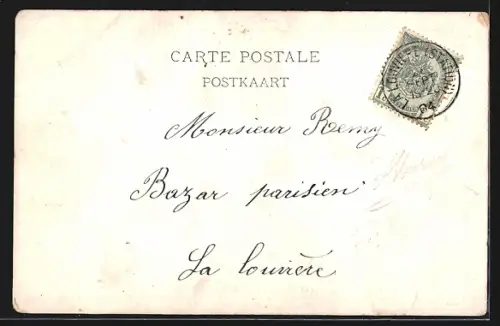 CARTE POSTALE
POSTKAART
Monsieur Remy
Bazar parisien
La louvière